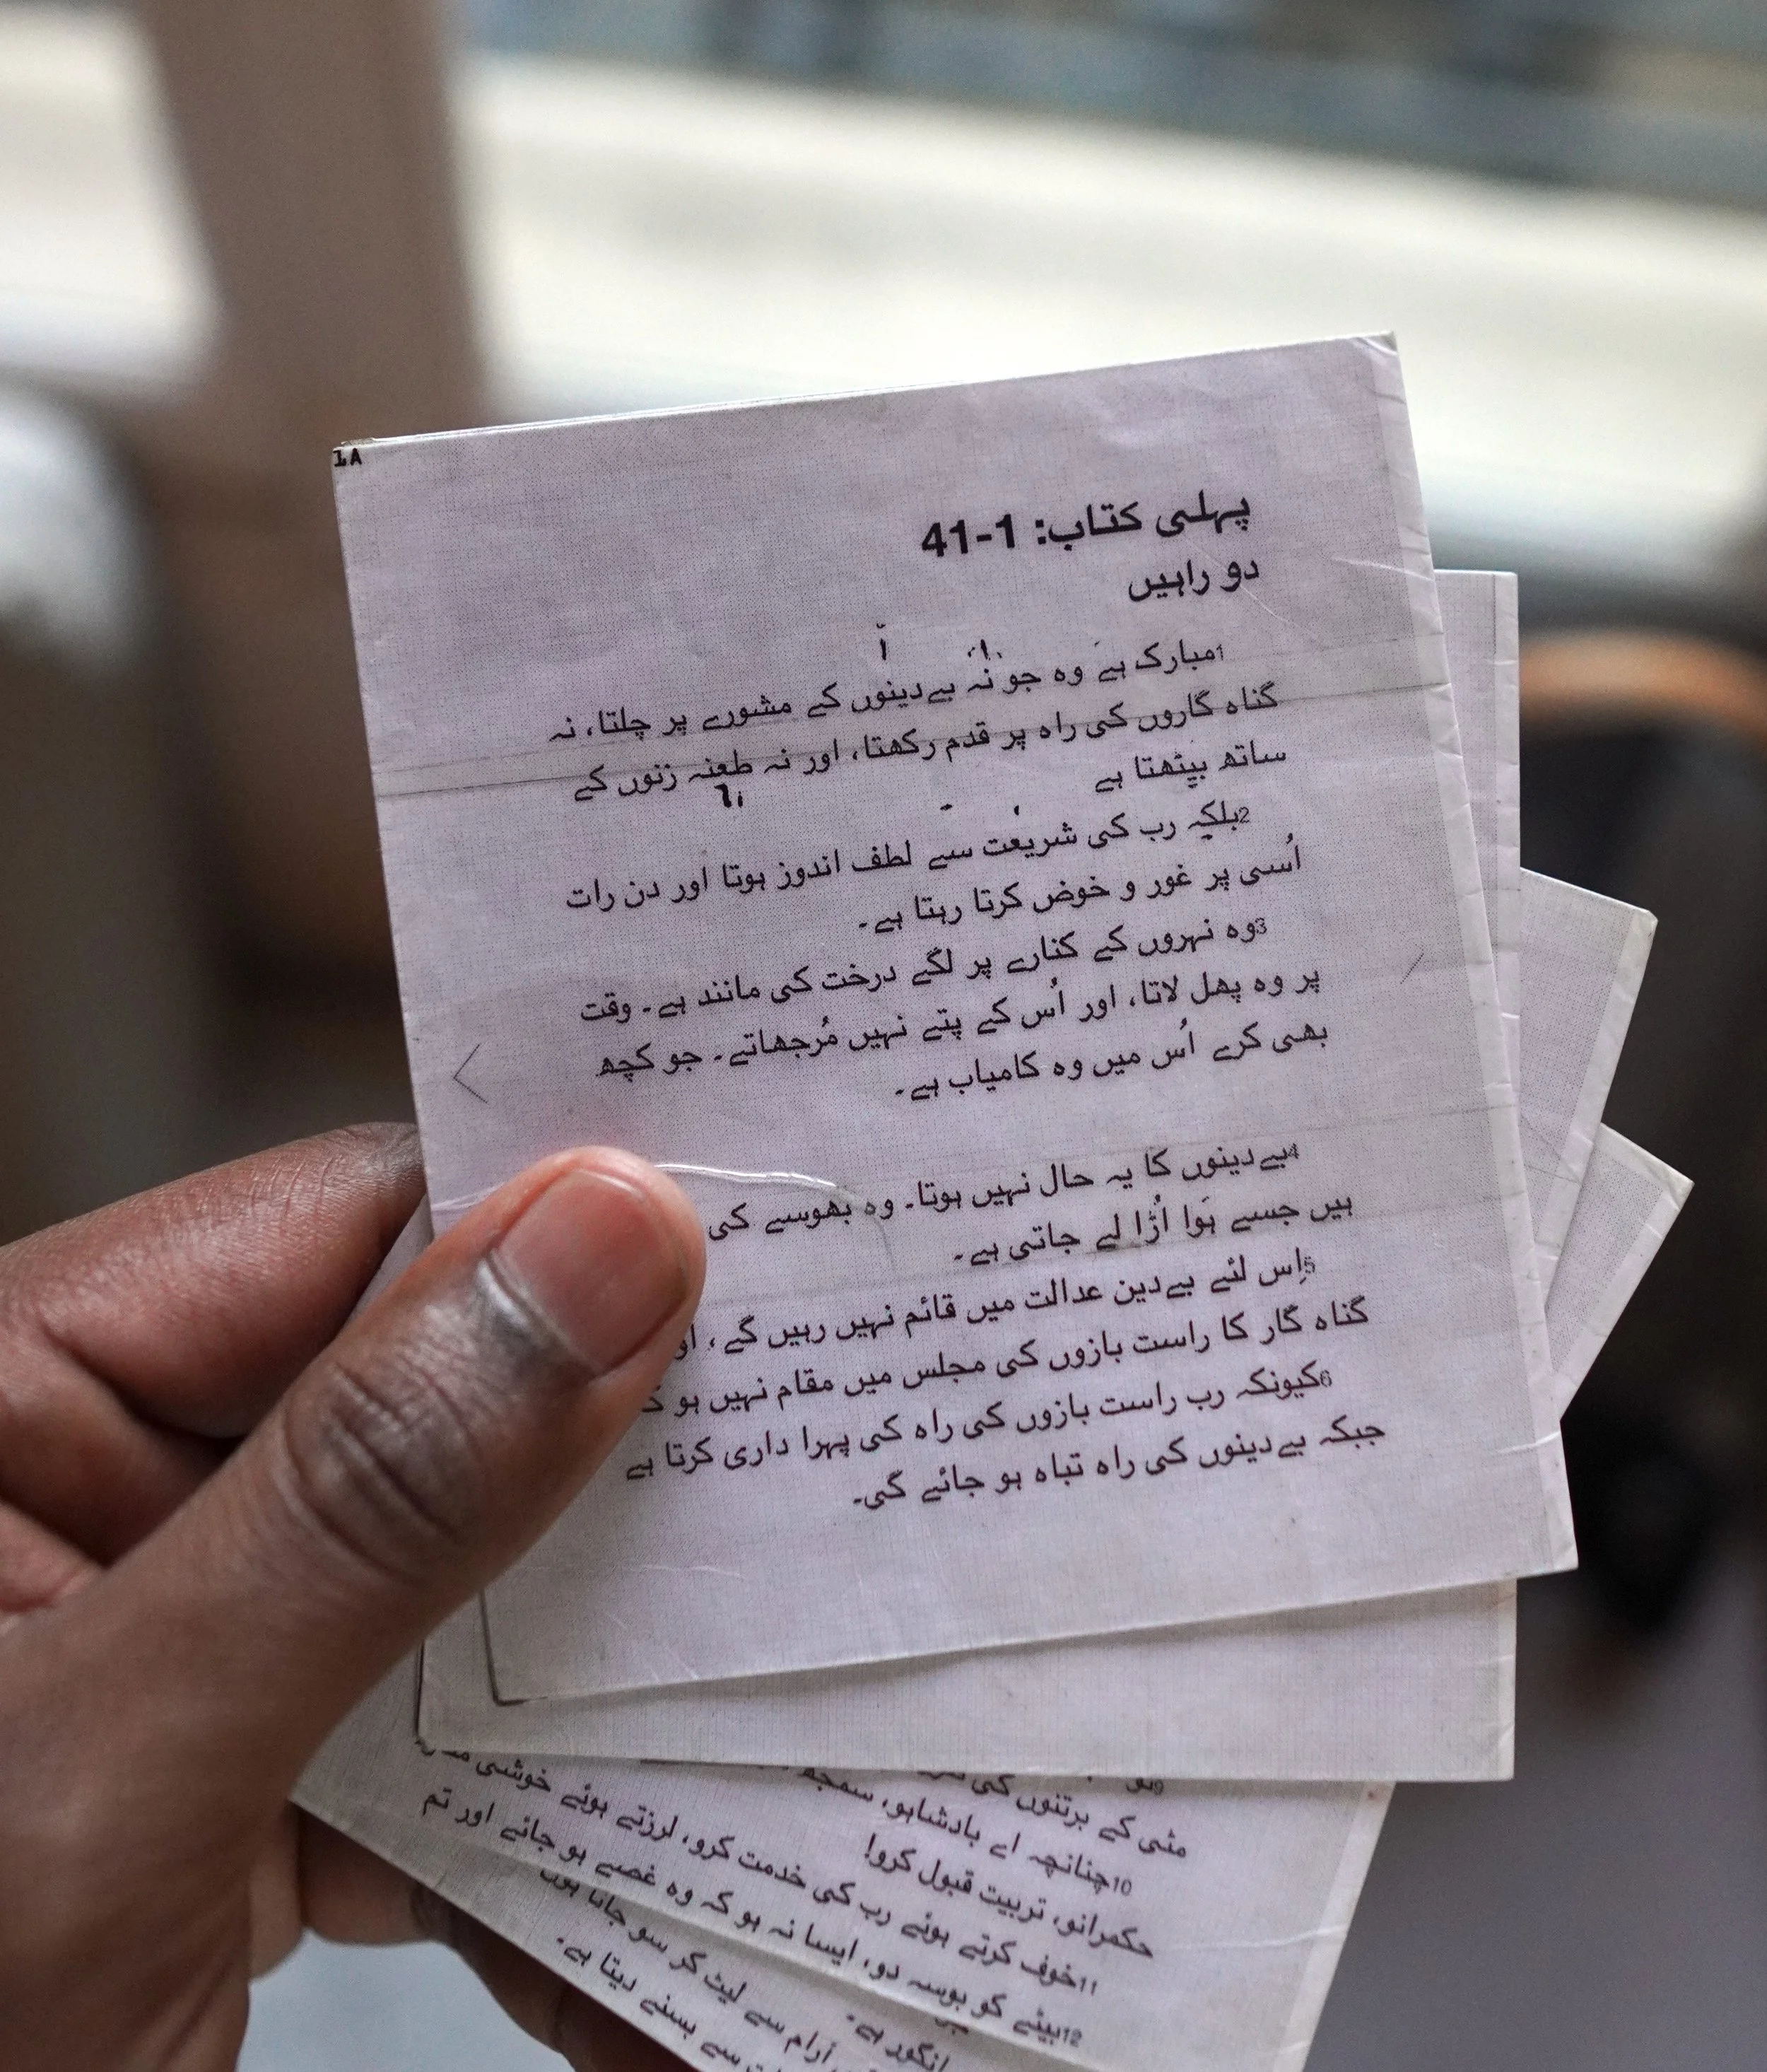 1A
پہلی کتاب: 1-41
دو راہیں
1مبارک ہے وہ جو نہ بےدینوں کے مشورے پر چلتا، نہ
گناہ گاروں کی راہ پر قدم رکھتا، اور نہ طعنہ زنوں کے
ساتھ بیٹھتا ہے
2بلکہ رب کی شریعت سے لطف اندوز ہوتا اور دن رات
اُسی پر غور و خوض کرتا رہتا ہے۔
3وہ نہروں کے کنارے پر لگے درخت کی مانند ہے۔ وقت
پر وہ پھل لاتا، اور اُس کے پتے نہیں مُرجھاتے۔ جو کچھ
بھی کرے اُس میں وہ کامیاب ہے۔
4بےدینوں کا یہ حال نہیں ہوتا۔ وہ بھوسے کی
ہیں جسے ہَوا اُڑا لے جاتی ہے۔
5اِس لئے بےدین عدالت میں قائم نہیں رہیں گے،
گناہ گار کا راست بازوں کی مجلس میں مقام نہیں ہو
6کیونکہ رب راست بازوں کی راہ کی پہرا داری کرتا ہے
جبکہ بےدینوں کی راہ تباہ ہو جائے گی۔
مٹی کے برتنوں کی
10چنانچہ اے بادشاہو، سمجھ
حکمرانو، تربیت قبول کرو!
11خوف کرتے ہوئے رب کی خدمت کرو، لرزتے ہوئے خوشی
12بیٹے کو بوسہ دو، ایسا نہ ہو کہ وہ غصے ہو جائے اور تم
انگور ہے۔
آرام سے لیٹ کر سو جاتا ہوں
سے بسنے دیتا ہے۔